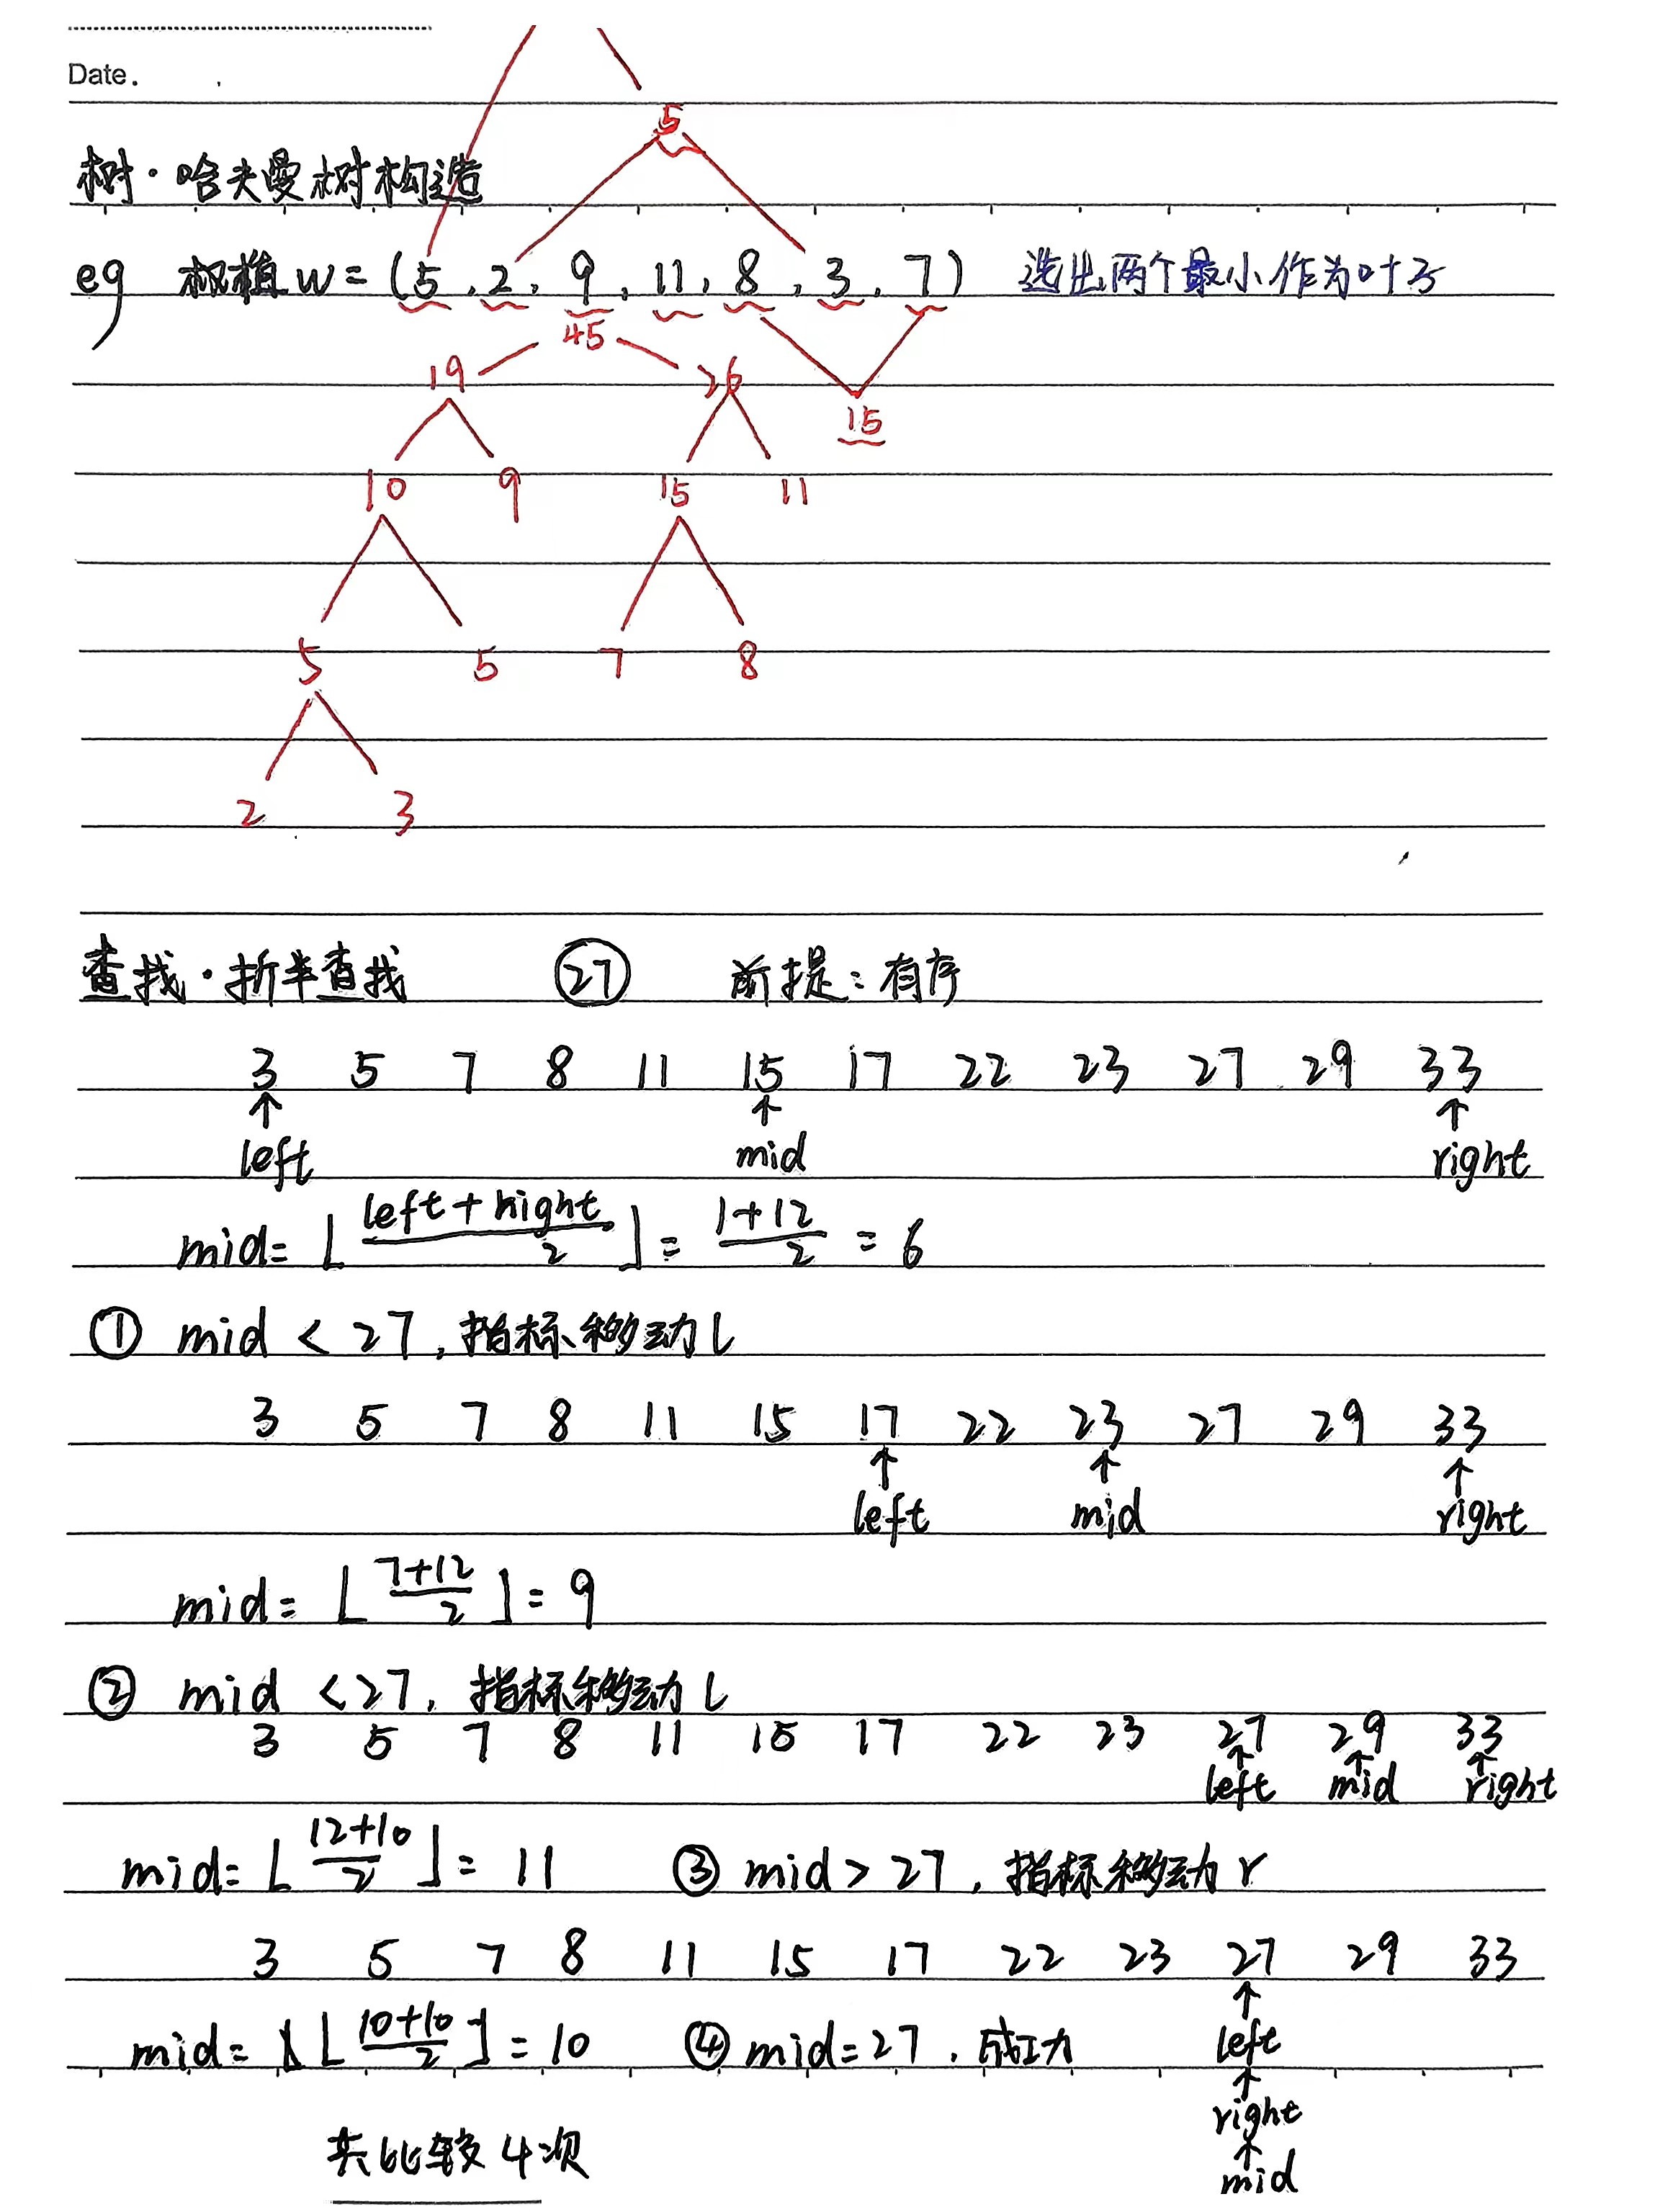 Date.
5
树·哈夫曼树构造
eg 权植 W = (5, 2, 9, 11, 8, 3, 7) 选出两个最小作为叶子
45
19 26
15
10 9 15 11
5 5 7 8
2 3
查找·折半查找 ㉗ 前提：有序
3 5 7 8 11 15 17 22 23 27 29 33
↑ ↑ ↑
left mid right
mid= ⌊(left+right)/2⌋ = (1+12)/2 = 6
① mid < 27, 指标移动 l
3 5 7 8 11 15 17 22 23 27 29 33
↑ ↑ ↑
left mid right
mid= ⌊(7+12)/2⌋ = 9
② mid < 27, 指标移动 l
3 5 7 8 11 15 17 22 23 27 29 33
↑ ↑ ↑
left mid right
mid= ⌊(12+10)/2⌋ = 11 ③ mid > 27, 指标移动 r
3 5 7 8 11 15 17 22 23 27 29 33
↑
mid= ⌊(10+10)/2⌋ = 10 ④ mid=27, 成功 left
↑
right
↑
共比较4次 mid